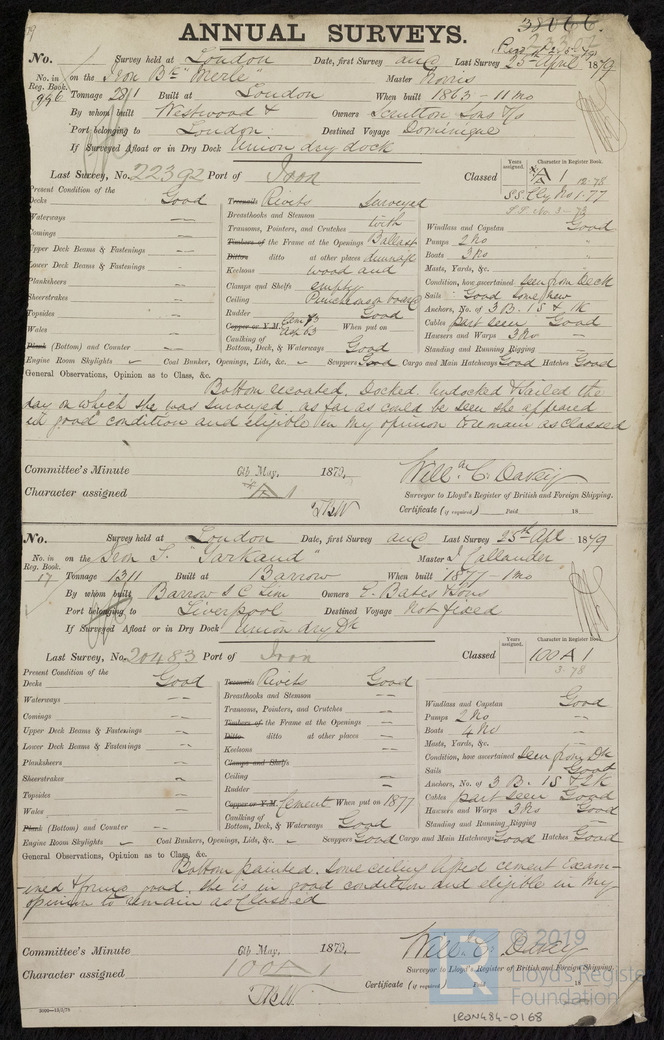 ANNUAL SURVEYS.
38066.
No. Survey held at London Date, first Survey and Last Survey 25 April 1879
No. in Reg. Book. on the Iron Bk "Merle" Master Norris
956 Tonnage 281 Built at London When built 1863 - 11 mo
By whom built Westwood & Owners Scrutton Sons & Co
Port belonging to London Destined Voyage Dominique
If Surveyed Afloat or in Dry Dock Union dry dock
Last Survey, No. 22392 Port of Iron Classed A 1 12.78
Years assigned. Character in Register Book.
SS. Cly No 1-77
Present Condition of the
Decks Good
Waterways
Comings
Upper Deck Beams & Fastenings
Lower Deck Beams & Fastenings
Planksheers
Sheerstrakes
Topsides
Wales
Plank (Bottom) and Counter
Engine Room Skylights
Treenails Rivets surveyed
Breasthooks and Stemson
Transoms, Pointers, and Crutches with
Timbers of the Frame at the Openings Ballast
Ditto ditto at other places dunnage
Keelsons wood and
Clamps and Shelfs empty
Ceiling Puncheons on board
Rudder Good
Copper or Y.M. Cem 73 63 When put on
Caulking of Bottom, Deck, & Waterways Good
Coal Bunker, Openings, Lids, &c. Scuppers Good Cargo and Main Hatchways Good Hatches Good
Windlass and Capstan Good
Pumps 2 No
Boats 3 No
Masts, Yards, &c.
Condition, how ascertained seen from deck
Sails Good some new
Anchors, No. of 3 B. 1 S & 1 K
Cables part seen Good
Hawsers and Warps 3 No
Standing and Running Rigging
General Observations, Opinion as to Class, &c.
Bottom recoated. Docked, undocked & sailed the
day on which she was surveyed, as far as could be seen she appeared
in good condition and eligible in my opinion to remain as classed
Committee's Minute 6th May, 1879.
Character assigned A 1
Willm C. Davey
Surveyor to Lloyd's Register of British and Foreign Shipping.
Certificate (if required) Paid 18
No. Survey held at London Date, first Survey and Last Survey 25th Apl 1879
No. in Reg. Book. on the Iron S. "Yarkand" Master J Callander
17 Tonnage 1311 Built at Barrow When built 1877 - 1 mo
By whom built Barrow S C Lim Owners E. Bates & Sons
Port belonging to Liverpool Destined Voyage Not fixed
If Surveyed Afloat or in Dry Dock Union dry Dk
Last Survey, No. 20483 Port of Iron Classed 100 A 1
Years assigned. Character in Register Book.
3.78
Present Condition of the
Decks Good
Waterways
Comings
Upper Deck Beams & Fastenings
Lower Deck Beams & Fastenings
Planksheers
Sheerstrakes
Topsides
Wales
Plank (Bottom) and Counter
Engine Room Skylights
Treenails Rivets Good
Breasthooks and Stemson
Transoms, Pointers, and Crutches
Timbers of the Frame at the Openings
Ditto ditto at other places
Keelsons
Clamps and Shelfs
Ceiling
Rudder
Copper or Y.M. Cement When put on 1877
Caulking of Bottom, Deck, & Waterways Good
Coal Bunkers, Openings, Lids, &c. Scuppers Good Cargo and Main Hatchways Good Hatches Good
Windlass and Capstan Good
Pumps 2 No
Boats 4 No
Masts, Yards, &c.
Condition, how ascertained seen from Dk
Sails Good
Anchors, No. of 3 B. 1 S & 2 K
Cables part seen Good
Hawsers and Warps 3 No Good
Standing and Running Rigging
General Observations, Opinion as to Class, &c.
Bottom painted. Some ceiling lifted cement exam-
-ined & found good. She is in good condition and eligible in my
opinion to remain as Classed
Committee's Minute 6th May, 1879.
Character assigned 100 A 1
Will. C. Davey
Surveyor to Lloyd's Register of British and Foreign Shipping.
Certificate (if required) Paid 18
© 2019
Lloyd's Register
Foundation
IRON484-0168